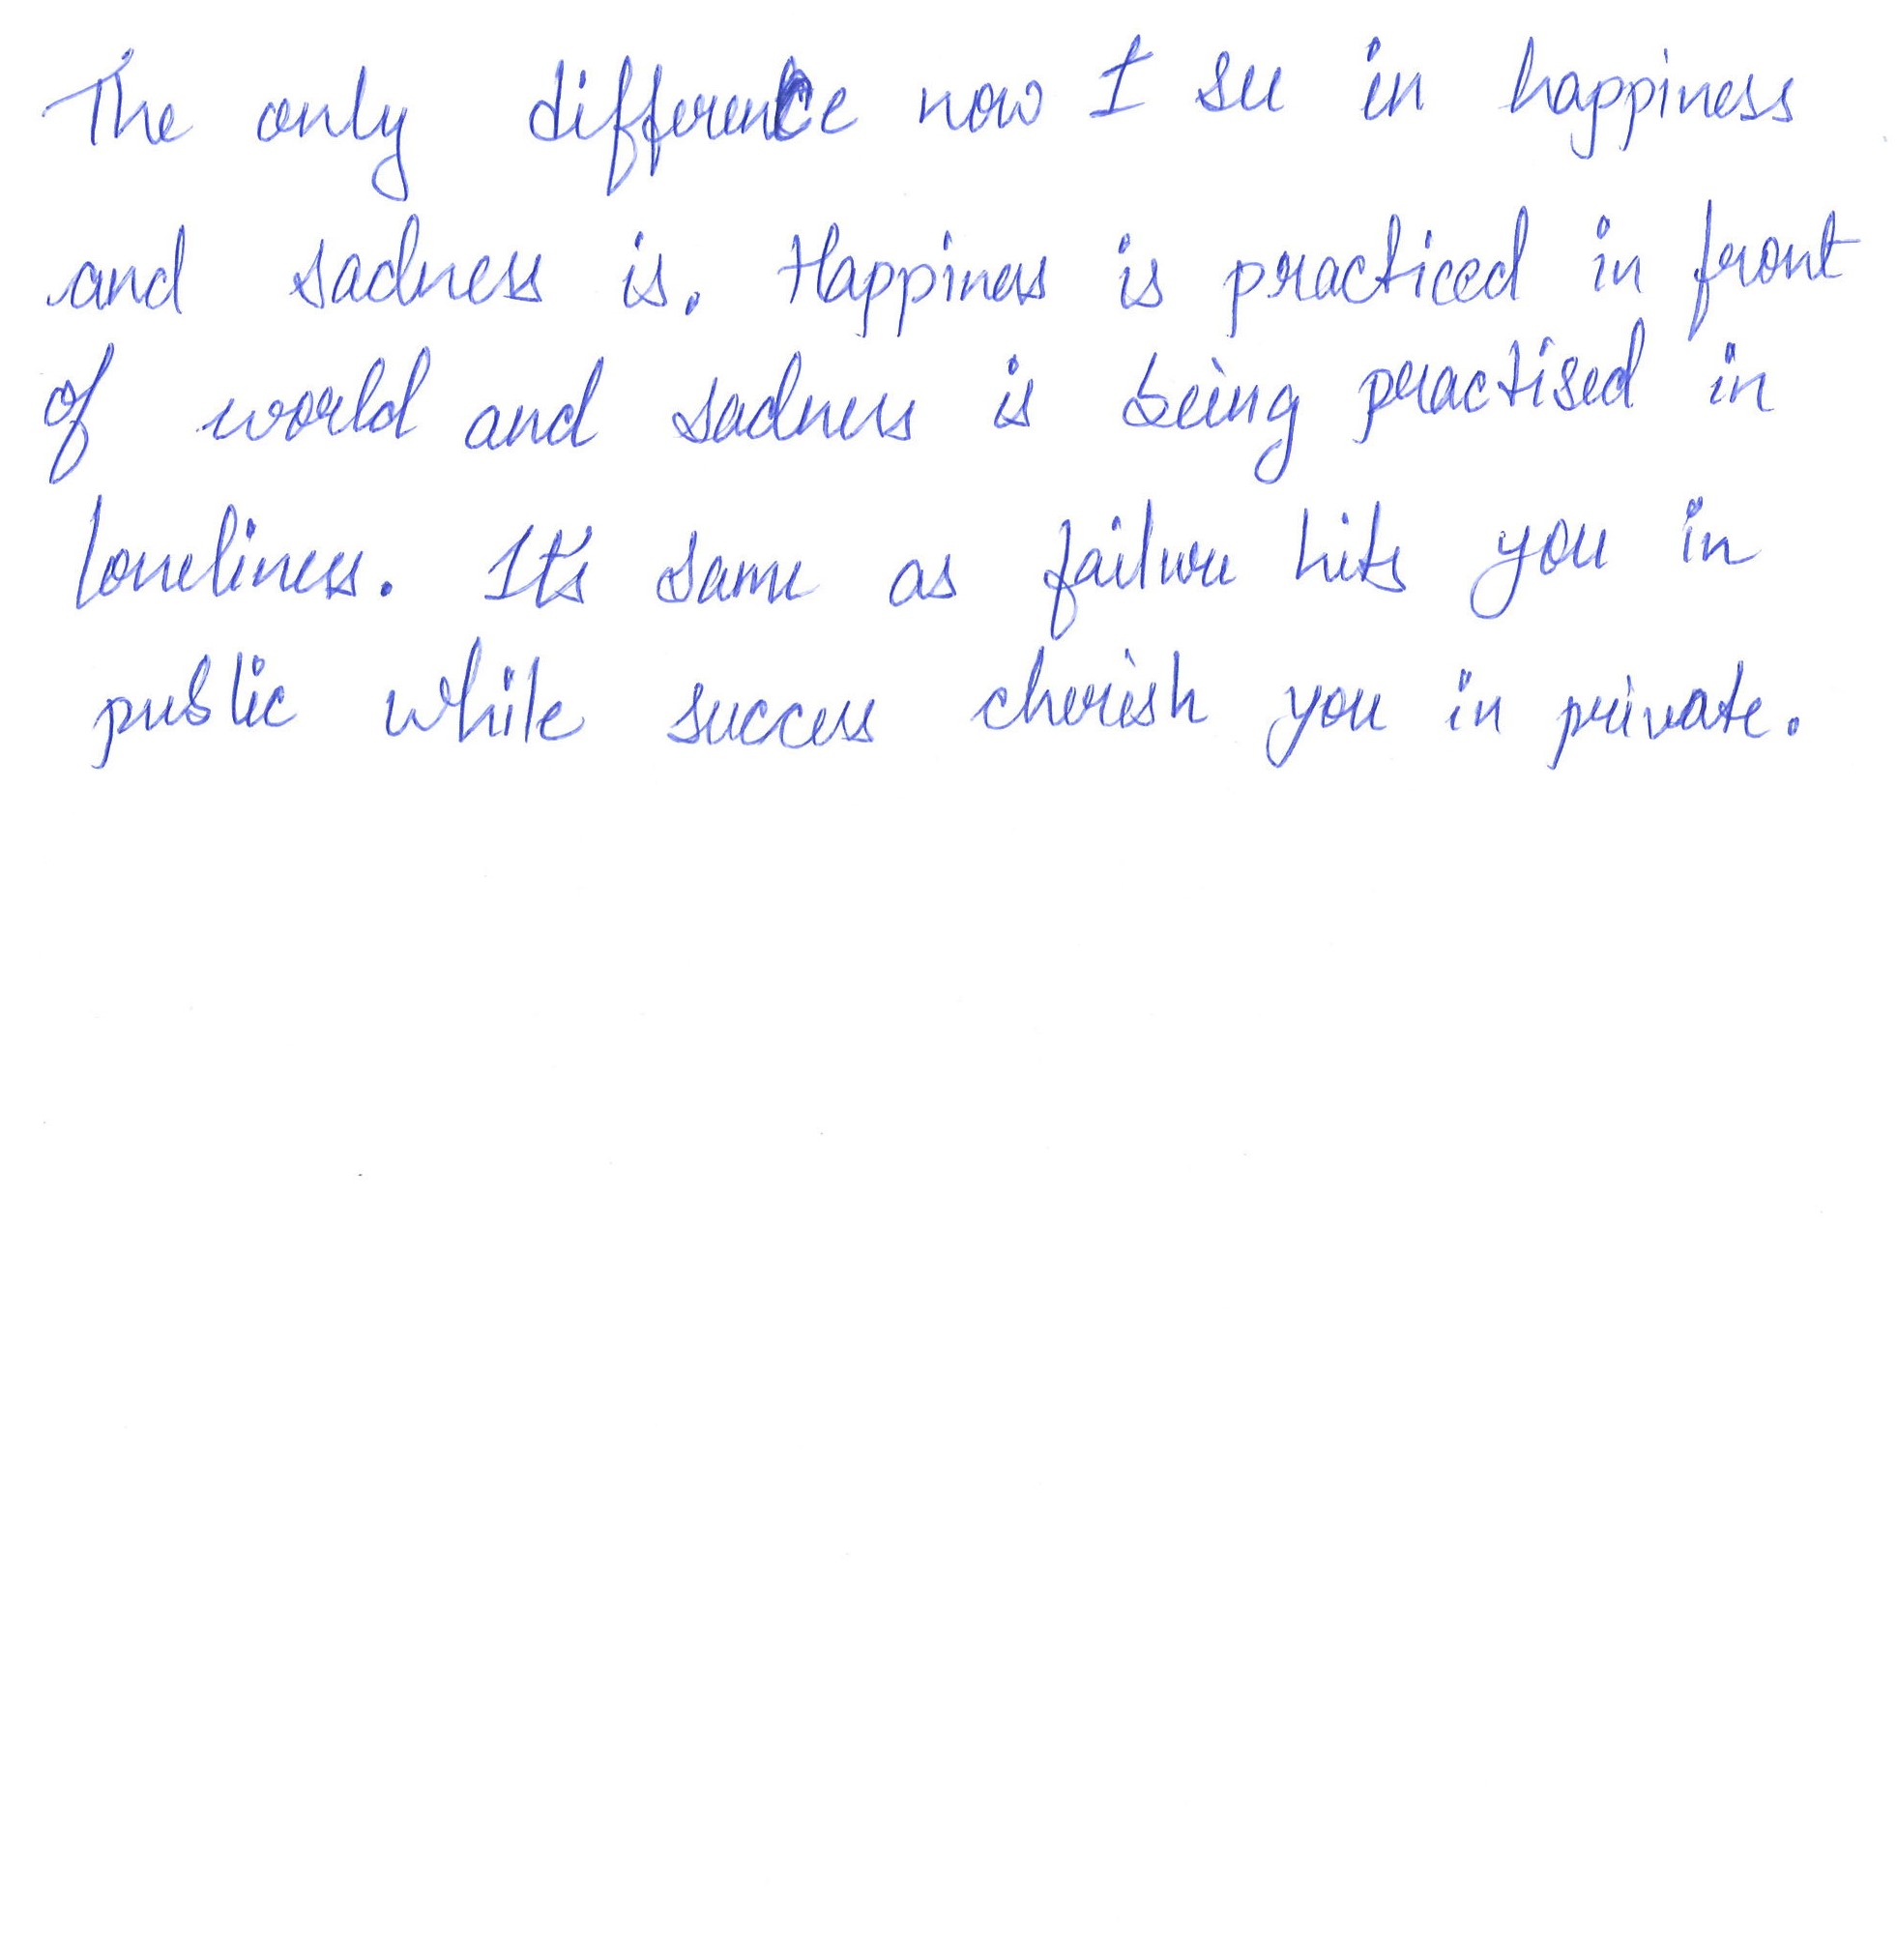 The only difference now I see in happiness
and sadness is. Happiness is practiced in front
of world and sadness is being practised in
loneliness. It's same as failure hits you in
public while success cherish you in private.